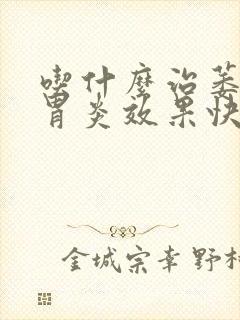 喫什麼治萎
胃炎效果快
金城宗幸 野村